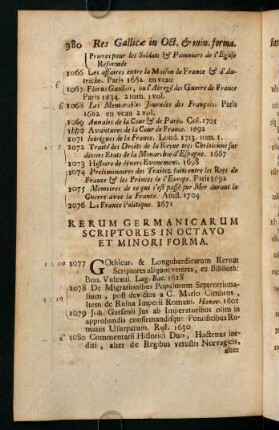 380 Res Gallicæ in Oct. & min. forma.
Prieres pour les Soldats & Pionniers de l'Eglise
Reformée
1066 Les affaires entre la Maison de France & d'Au-
triche. Paris 1662. en veau
6 1067 Florus Gaulois, ou l'Abregé des Guerre de France
Paris 1634. 2 tom. 1 vol.
6 1068 Les Memorables Journées des François. Paris
1682. en veau 2 vol.
1069 Annales de la Cour & de Paris. Col. 1701
1070 Avantures de la Cour de France. 1692
1071 Intrigues de la France. Lond. 1713. 1 tom.
1072 Traité des Droits de la Reyne tres Chrétienne sur
divers Etats de la Monarchie d'Espagne. 1667
1073 Histoire de divers Evenemens. 1698
1074 Preliminaires des Traités faits entre les Roys de
France & les Princes de l'Europe. Paris 1692
1075 Memoires de ce qui s'est passé sur Mer durant la
Guerre avec la France. Amst. 1704
1076 La France Politique. 1671
RERUM GERMANICARUM
SCRIPTORES IN OCTAVO
ET MINORI FORMA.
1077 GOthicar. & Longobardicarum Rerum
Scriptores aliquot veteres, ex Biblioth.
Bon. Vulcanii. Lug. Bat. 1618
1078 De Migrationibus Populorum Septentriona-
lium, post devictos a C. Mario Cimbros,
Item de Ruina Imperii Romani. Hanov. 1601
1079 Joh. Garsenii Jus ab Imperatoribus olim in
approbandis confirmandisque Pontificibus Ro-
manis Usurpatum. Rigt. 1650
6 1080 Commentarii Historici Duo, Hactenus ine-
diti, alter de Regibus vetustis Norvagicis,
alter